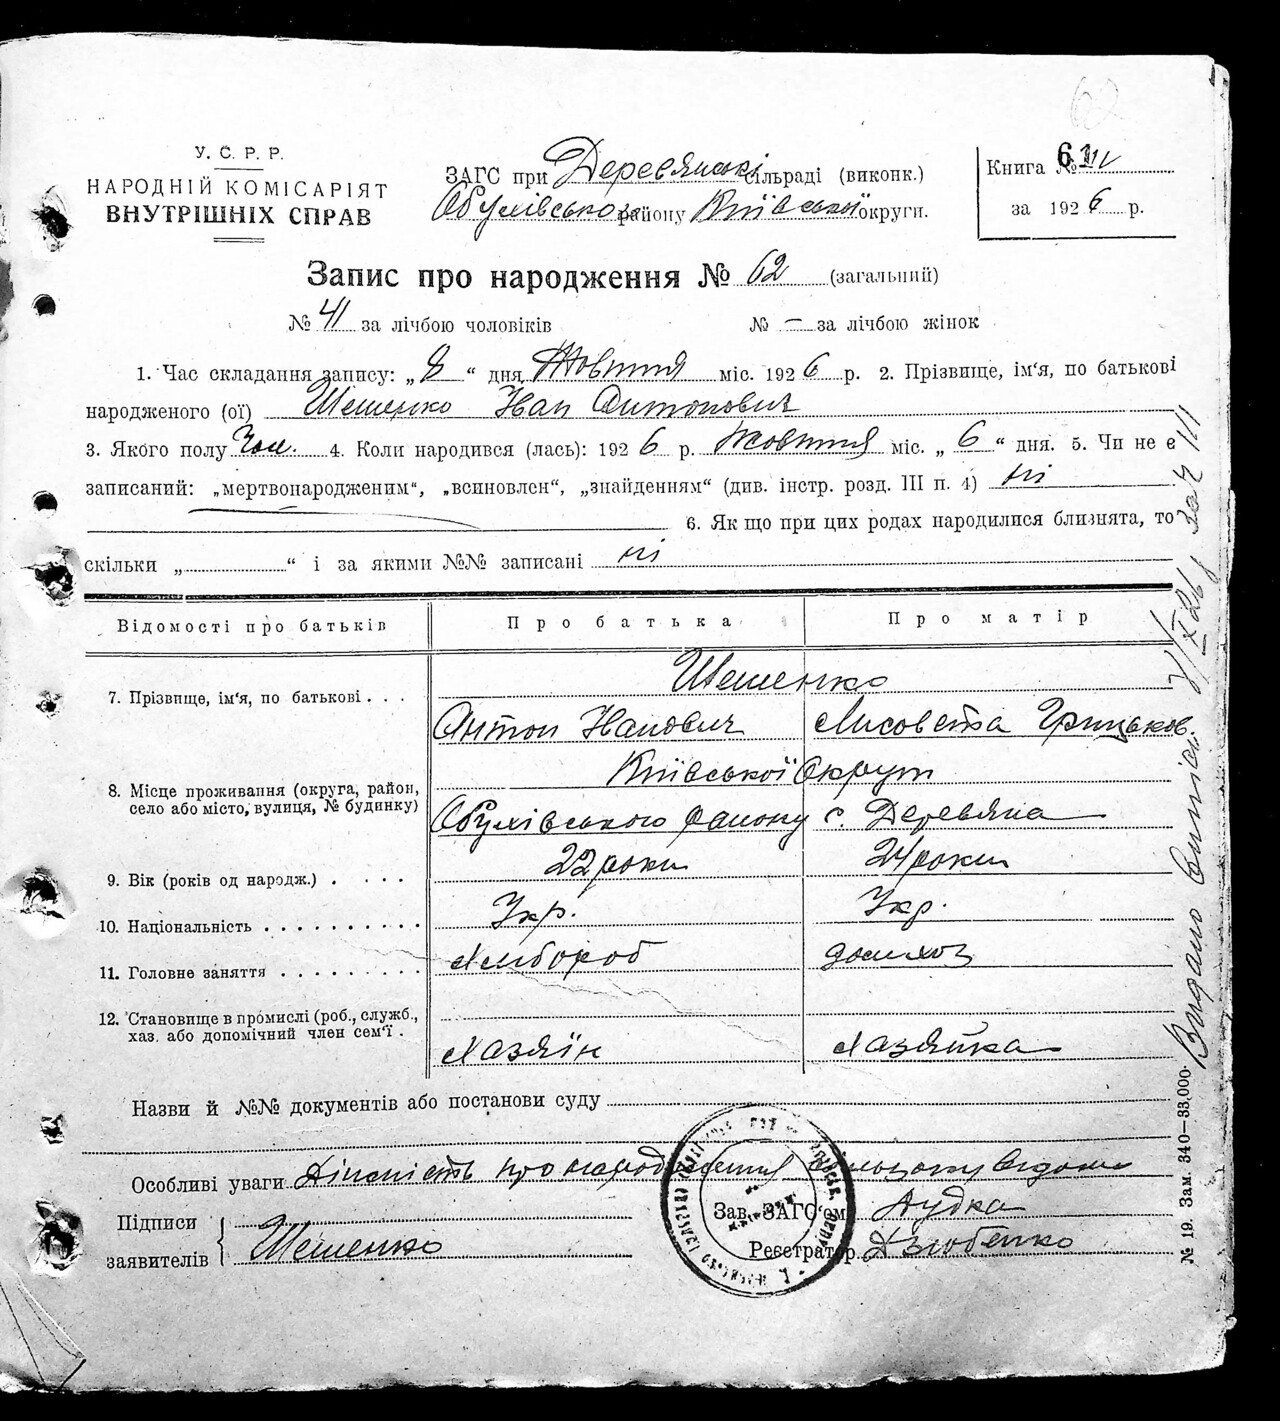 62
У. С. Р. Р.
НАРОДНІЙ КОМІСАРІЯТ
ВНУТРІШНІХ СПРАВ
ЗАГС при Деревянські сільраді (виконк.)
Обухівського району Київської округи.
Книга № 61
за 1926 р.
Запис про народження № 62 (загальний)
№ 41 за лічбою чоловіків № – за лічбою жінок
1. Час складання запису: „8“ дня Жовтня міс. 1926 р. 2. Прізвище, ім'я, по батькові
народженого (ої) Шешенко Іван Антонович
3. Якого полу Чол. 4. Коли народився (лась): 1926 р. Жовтня міс. „6“ дня. 5. Чи не є
записаний: „мертвонародженим“, „всиновлен“, „знайденням“ (див. інстр. розд. III п. 4) ні
6. Як що при цих родах народилися близнята, то
скільки „ “ і за якими №№ записані ні
Відомості про батьків Про батька Про матір
7. Прізвище, ім'я, по батькові . . . Шешенко
Антон Іванович Лисовета Грицьков.
8. Місце проживання (округа, район, село або місто, вулиця, № будинку) Київської Округи
Обухівського району с. Деревяна
9. Вік (років од народж.) . . . . 22 роки 24 роки
10. Національність . . . . . . . . . . Укр. Укр.
11. Головне заняття . . . . . . . . . Хлибороб домхоз
12. Становище в промислі (роб., служб.,
хаз. або допомічний член сем'ї . Хазяїн Хазяйка
Назви й №№ документів або постанови суду
Особливі уваги Дійсність про народження
Підписи
заявителів { Шешенко
Зав. ЗАГС'ом Дудка
Реєстратор Дзюбенко
Видано
№ 19. Зам. 340—33.000.